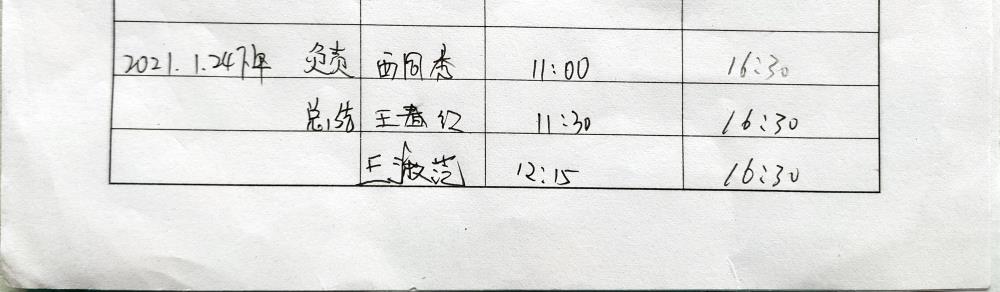 2021.1.24下午 负责 西同秀 11:00 16:30
总结 王春红 11:30 16:30
王淑范 12:15 16:30